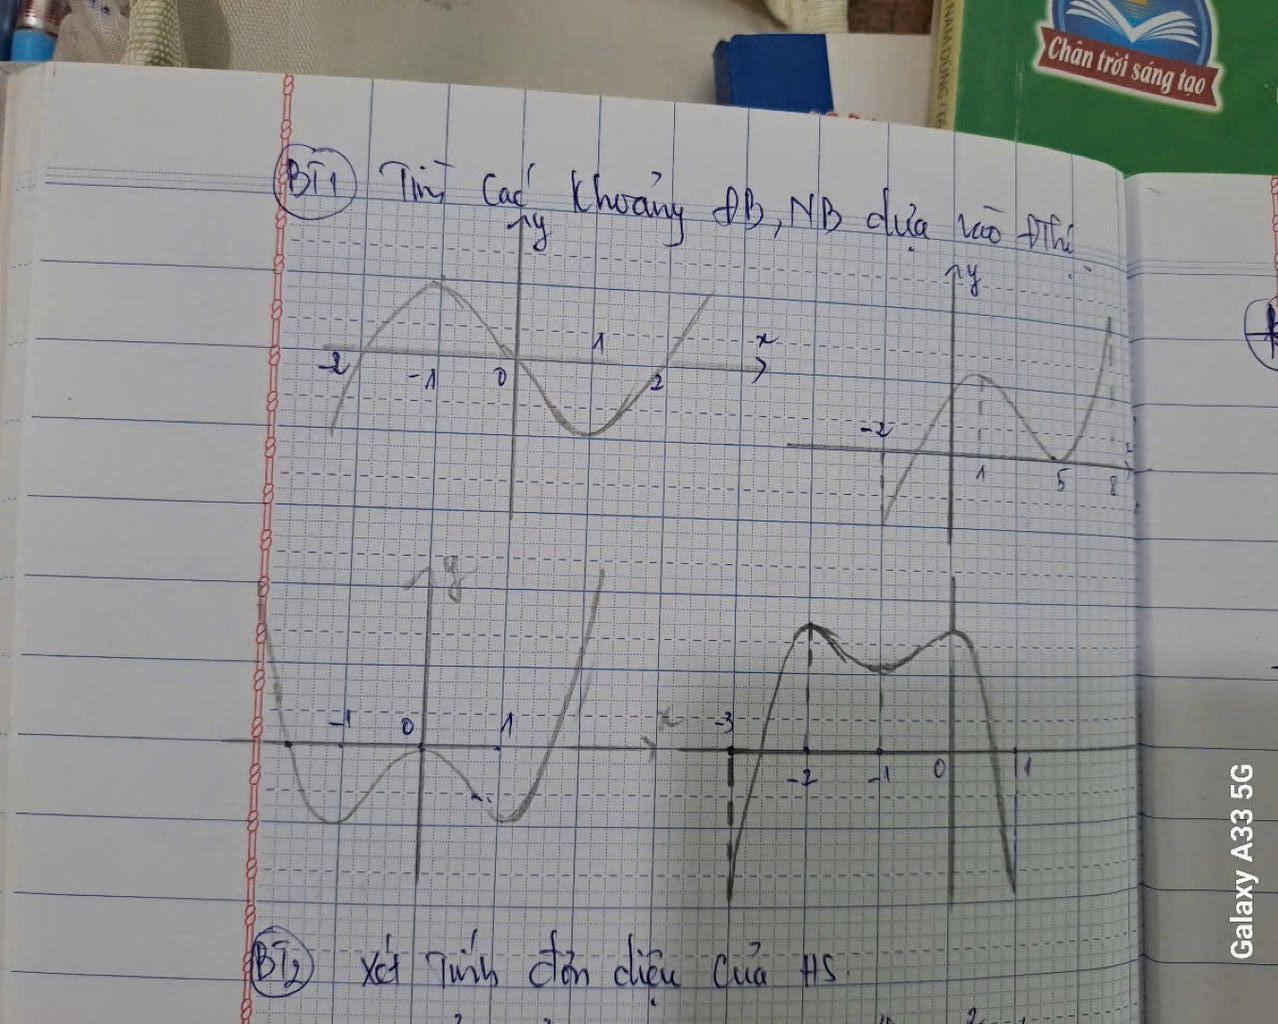 Chân trời sáng tạo
BT1 Tìm các khoảng ĐB, NB dựa vào Đthị
y
-2 -1 0 1 2 x
y
-2 1 5 8
y
-1 0 1 x
-3 -2 -1 0 1
BT2 Xét tính đơn điệu của HS
Galaxy A33 5G